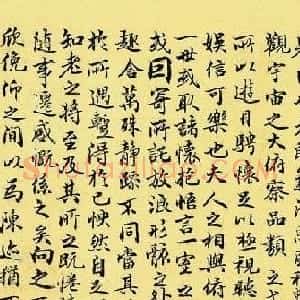 觀宇宙之大俯察品類之
所以遊目騁懷足以極視聽
娛信可樂也夫人之相與俯
一世或取諸懷抱悟言一室之
或因寄所託放浪形骸之外
趣舍萬殊靜躁不同當其
於所遇暫得於己怏然自足
知老之將至及其所之既惓
隨事遷感慨係之矣向之
欣俛仰之間以為陳迹猶